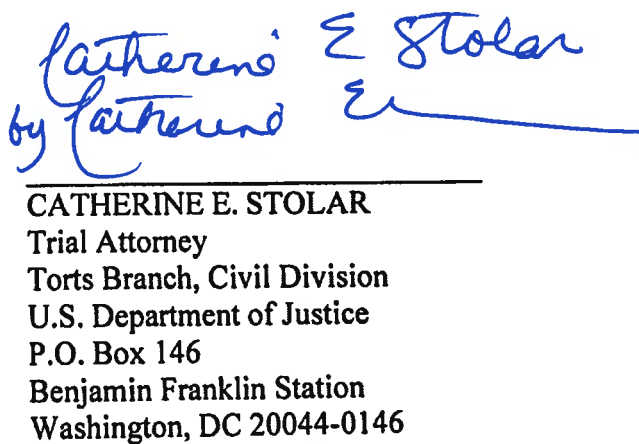 Catherine E Stolar
by Catherine E
CATHERINE E. STOLAR
Trial Attorney
Torts Branch, Civil Division
U.S. Department of Justice
P.O. Box 146
Benjamin Franklin Station
Washington, DC 20044-0146